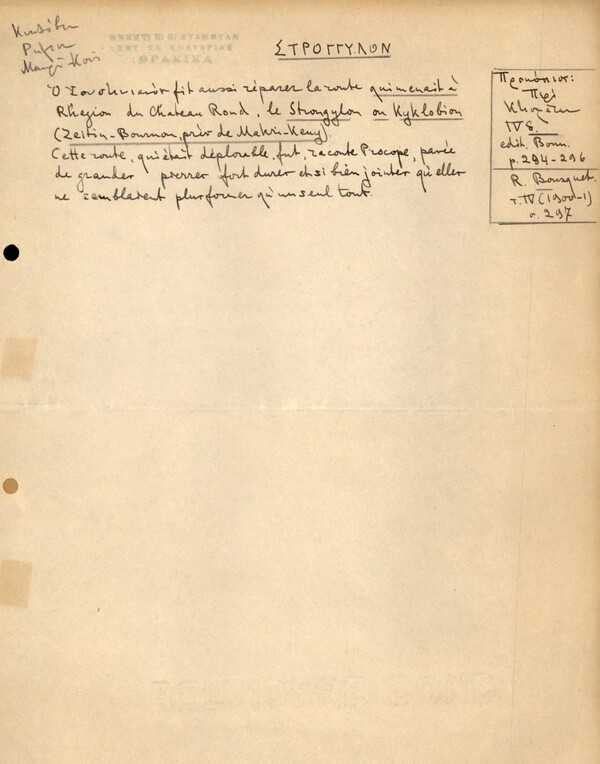 ΣΤΡΟΓΓΥΛΟΝ
Ὁ Ἰουστινιανὸς fit aussi réparer la route qui menait à
Rhegion du Chateau Rond, le Strongylon ou Kyklobion
(Zeitin-Bournon, près de Makri-Keuy)
Cette route, qui était déplorable, fut, raconte Procope, pavée
de grandes pierres fort dures et si bien jointes qu'elles
ne semblaient plus former qu'un seul tout.
Προκόπιος:
Περὶ
Κτισμάτων
IV 8.
edit. Bonn.
p. 294-296
R. Bousquet.
τ. IV (1900-1)
σ. 297